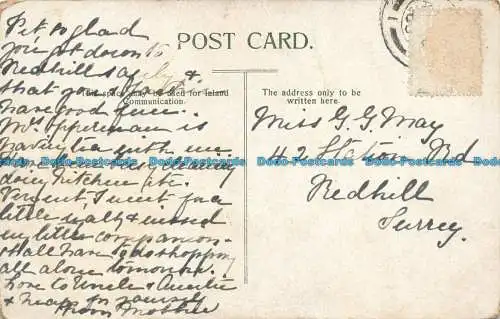 Pet so glad
you got down to
Redhill safely &
that you
have good
Mrs Opperman is
having tea with me
cleaning
down Kitchen etc.
I went for a
little walk & missed
my little companion.
Shall have to go shopping
all alone tomorrow.
Love to Uncle & Auntie
& heaps for yourself
from Mother
POST CARD.
This space may be used for Inland
Communication.
The address only to be
written here.
Miss G. G. May
42 Station Rd
Redhill
Surrey.
Dodo-Postcards.com
Dodo-Postcards.com
Dodo-Postcards.com